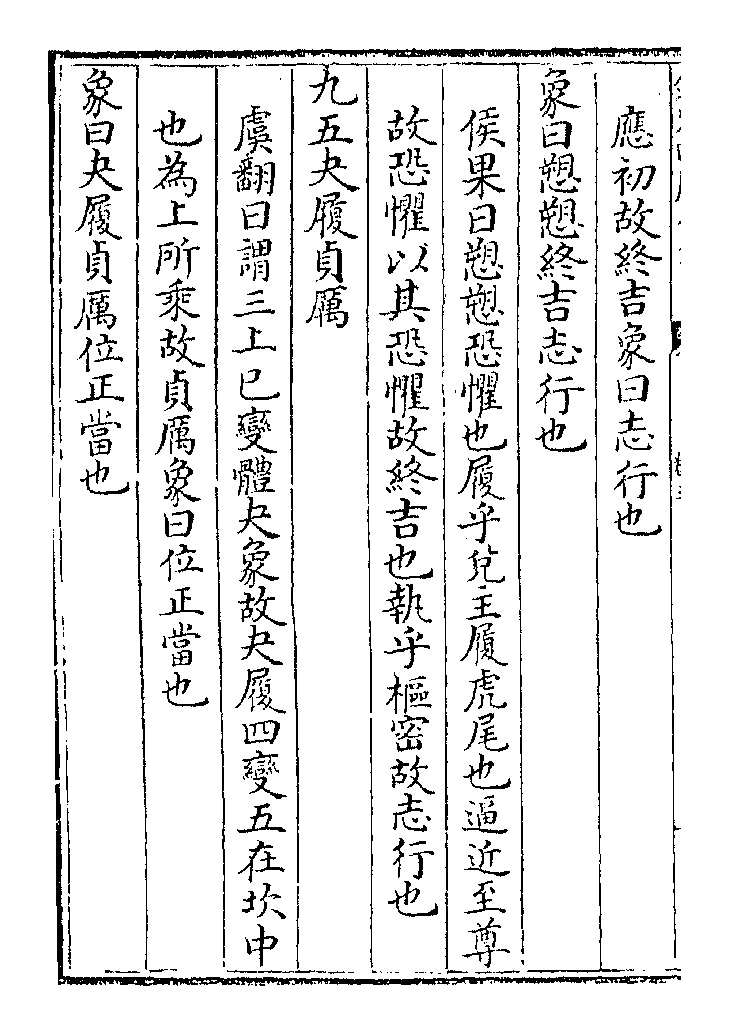 應初故終吉象曰志行也
象曰愬愬終吉志行也
侯果曰愬愬恐懼也履乎兌主履虎尾也逼近至尊
故恐懼以其恐懼故終吉也執乎樞密故志行也
九五夬履貞厲
虞翻曰謂三上已變體夬象故夬履四變五在坎中
也為上所乘故貞厲象曰位正當也
象曰夬履貞厲位正當也